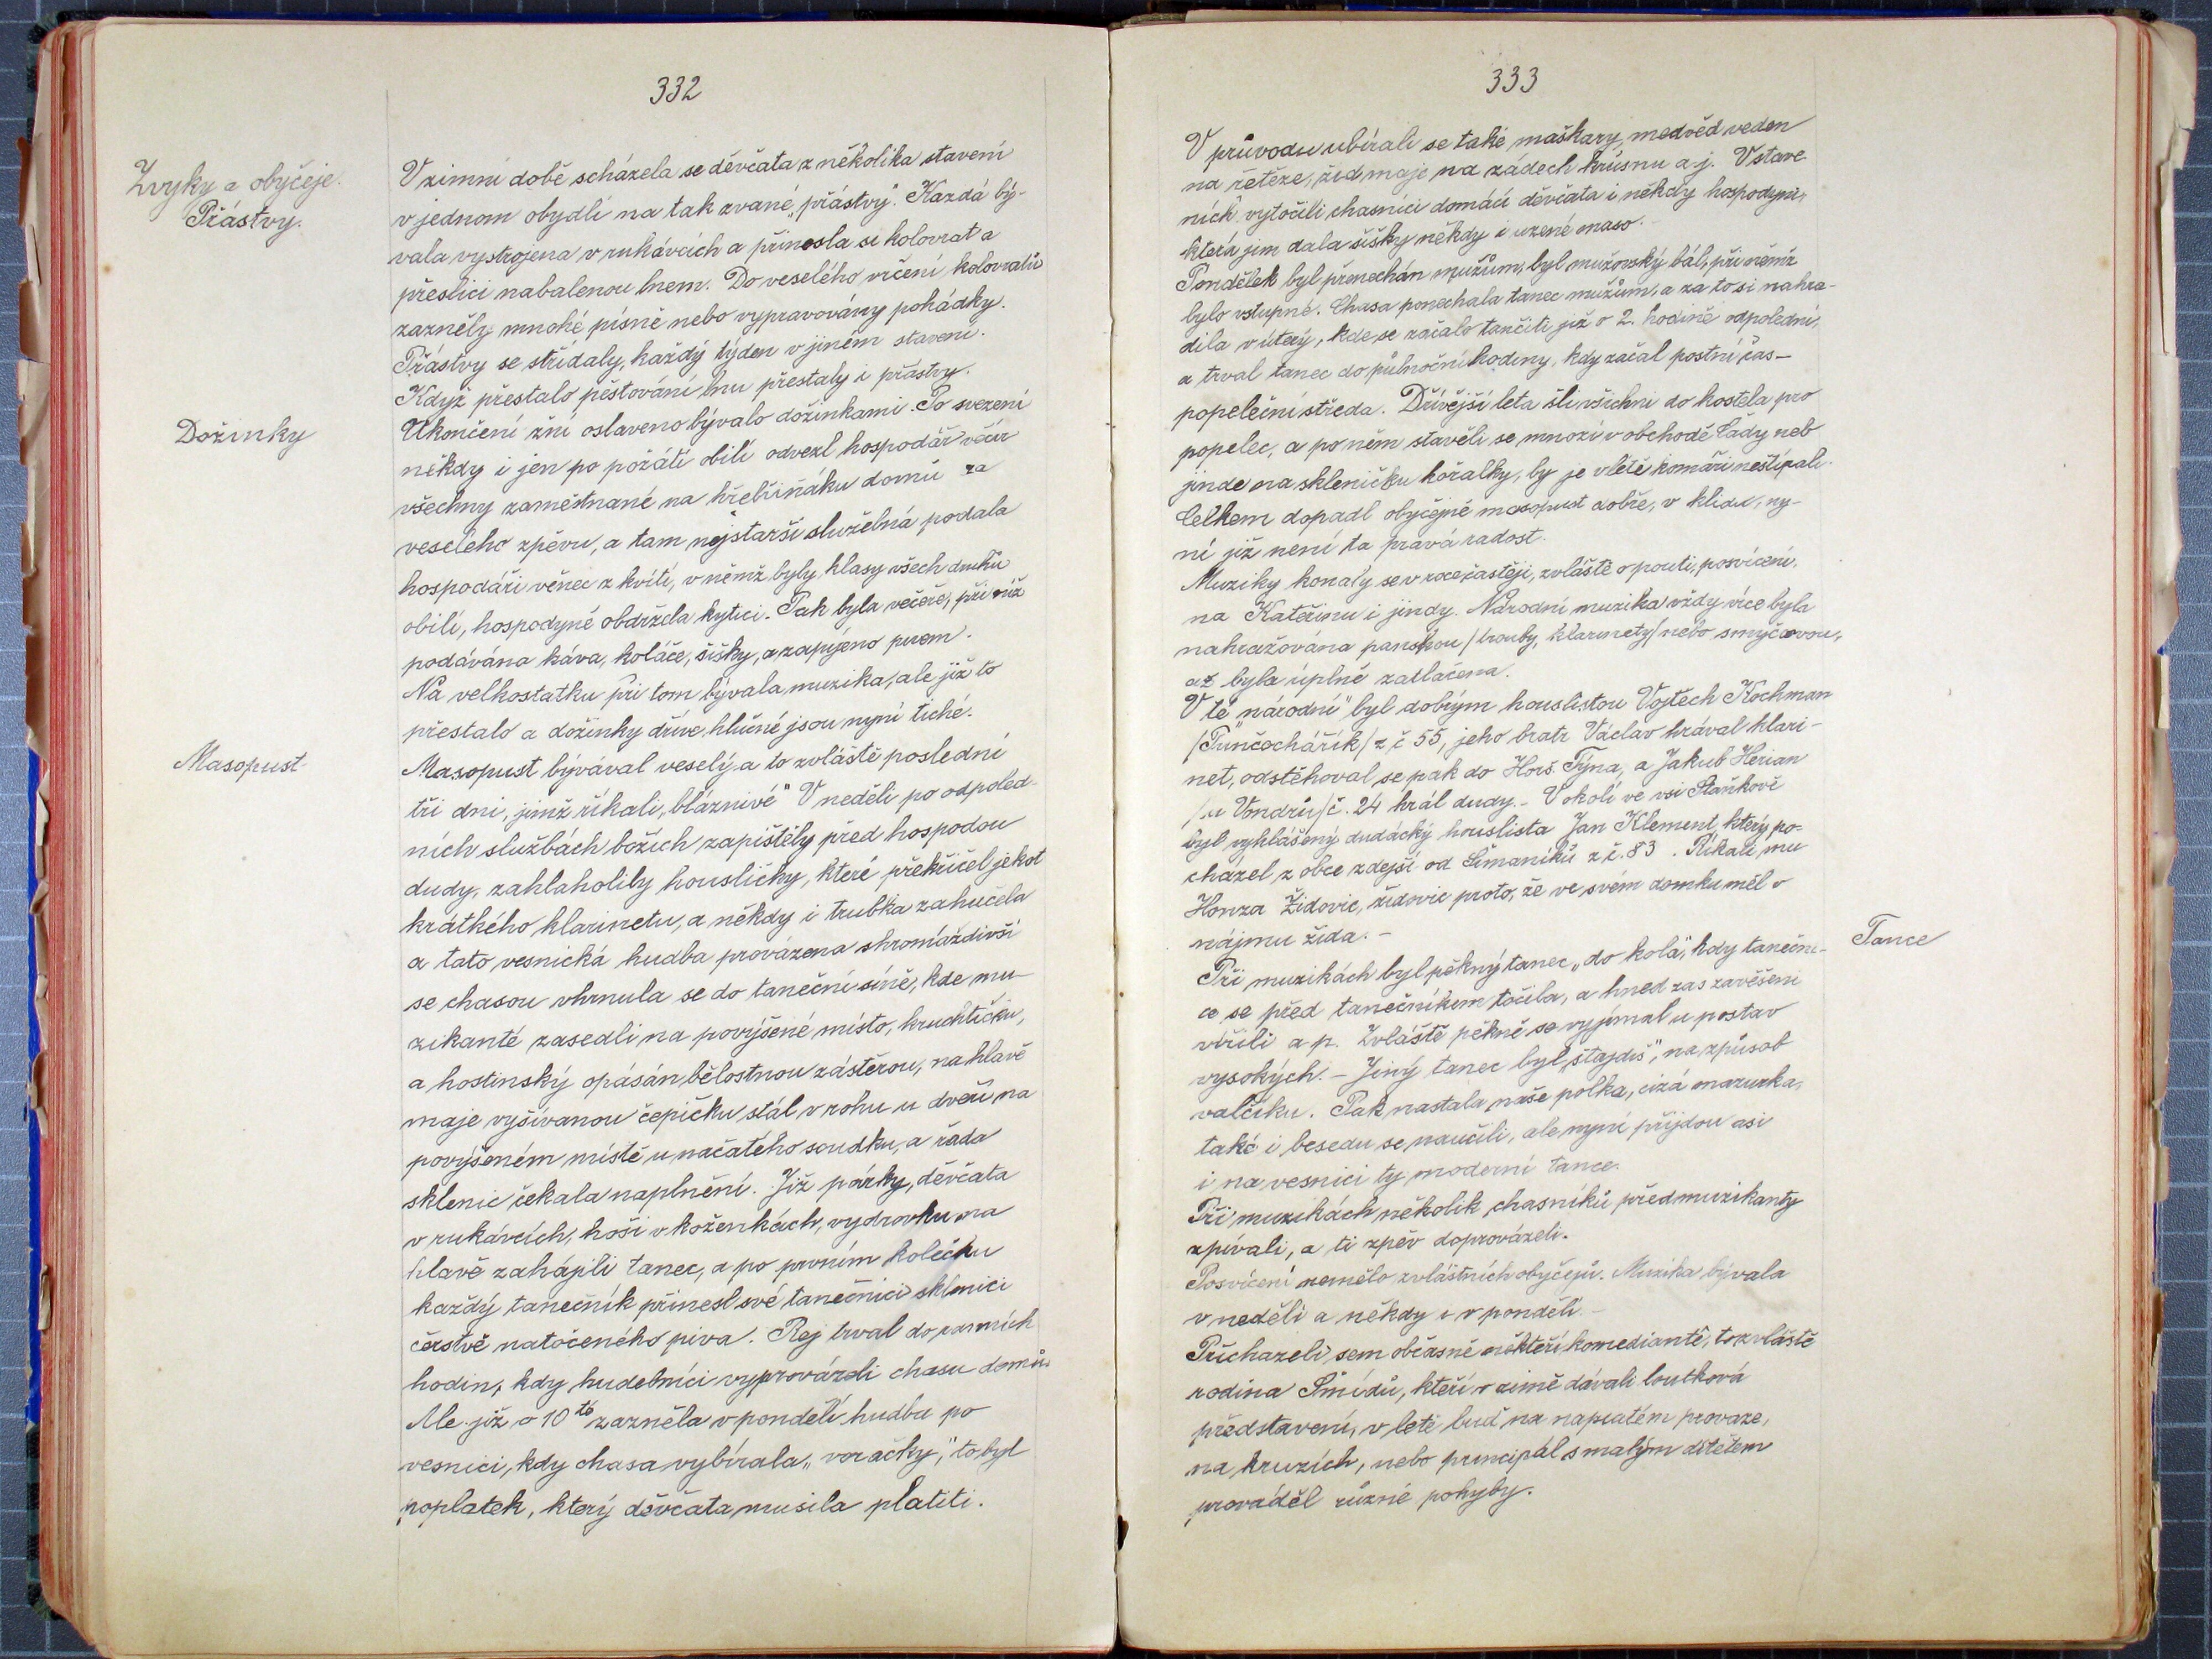 332
Zvyky a obyčeje.
Přástvy.
V zimní době scházela se děvčata z několika stavení
v jednom obydlí na tak zvané „přástvy“. Každá bý-
vala vystrojena v rukávcích a přinesla si kolovrat a
přeslici nabalenou lnem. Do veselého vrčení kolovratů
zazněly mnohé písně nebo vypravovány pohádky.
Přástvy se střídaly, každý týden v jiném stavení.
Když přestalo pěstování lnu přestaly i přástvy.
Dožinky
Ukončení žní oslaveno bývalo dožinkami. Po svezení
někdy i jen po požátí obilí odvezl hospodář večír
všechny zaměstnané na hřebiňáku domů za
veselého zpěvu, a tam nejstarší služebná podala
hospodáři věnec z kvítí, v němž byly hlasy všech druhů
obilí, hospodyně obdržela kytici. Pak byla večeře, při níž
podávána káva, koláče, šišky, a zapíjeno pivem.
Na velkostatku při tom bývala muzika, ale již to
přestalo a dožinky dříve hlučné jsou nyní tiché.
Masopust
Masopust býval veselý a to zvláště poslední
tři dni, jimž říkali „bláznivé“ V neděli po odpoled-
ních službách božích zapištěly před hospodou
dudy, zahlaholily housličky, které překřičel jekot
krátkého klarinetu, a někdy i trubka zahučela
a tato vesnická hudba provázena shromáždivší
se chasou vhrnula se do taneční síně, kde mu-
zikanté zasedli na povýšené místo, kruchtičku,
a hostinský opásán bělostnou zástěrou, na hlavě
maje vyšívanou čepičku stál v rohu u dveří na
povýšeném místě u načatého soudku, a řada
sklenic čekala naplnění. Již párky, děvčata
v rukávcích, hoši v koženkách, vydrovku na
hlavě zahájili tanec, a po prvním kolečku
každý tanečník přinesl své tanečnici sklenici
čerstvě natočeného piva. Rej trval do ranních
hodin, kdy hudebníci vyprovázeli chasu domů.
Ale již o 10té zazněla v pondělí hudba po
vesnici, kdy chasa vybírala „voračky“, to byl
poplatek, který děvčata musila platiti.
333
V průvodu ubírali se také maškary, medvěd veden
na řetěze, žid maje na zádech krúsnu a j. V stave-
ních vytočili chasníci domácí děvčata i někdy hospodyni,
která jim dala šišky někdy i uzené maso.
Pondělek byl přenechán mužům, byl mužovský bál, při němž
bylo vstupné. Chasa ponechala tanec mužům, a za to si nahra-
dila v úterý, kde se začalo tančiti již o 2. hodině odpolední,
a trval tanec do půlnoční hodiny, kdy začal postní čas –
popeleční středa. Dřívější leta šli všichni do kostela pro
popelec, a po něm stavěli se mnozí v obchodě Čady neb
jinde na skleničku kořalky, by je v létě komáři neštípali.
Celkem dopadl obyčejně masopust dobře, v klidu, ny-
ní již není ta pravá radost.
Muziky konaly se v roce častěji, zvláště o pouti, posvícení,
na Kateřinu i jindy. Národní muzika vždy více byla
nahražována panskou /trouby, klarinety/ nebo smyčcovou,
až byla úplně zatlačena.
V té „národní“ byl dobrým houslistou Vojtěch Kochman
/Punčochářík/ z č 55, jeho bratr Václav hrával klari-
net, odstěhoval se pak do Horš. Týna, a Jakub Herian
/u Vondrů/ č. 24 hrál dudy. – V okolí ve vsi Staňkově
byl vyhlášený dudácký houslista Jan Klement, který po-
cházel z obce zdejší od Šimaníků z č. 83. Říkali mu
Honza Židovic, židovic proto, že ve svém domku měl v
nájmu žida. –
Tance
Při muzikách byl pěkný tanec „do kola“, kdy tanečni-
ce se před tanečníkem točila, a hned zas zavěšeni
vířili a p. Zvláště pěkně se vyjímal u postav
vysokých. – Jiný tanec byl „štajdiš“, na způsob
valčíku. Pak nastala naše polka, cizá mazurka,
také i besedu se naučili, ale nyní přijdou asi
i na vesnici ty moderní tance.
Při muzikách několik chasníků před muzikanty
zpívali, a ti zpěv doprovázeli.
Posvícení nemělo zvláštních obyčejů. Muzika bývala
v neděli a někdy i v pondělí –
Přicházeli sem občasně někteří komedianté, to zvláště
rodina Šmídů, kteří v zimě dávali loutková
představení, v letě buď na napiatém provaze,
na kruzích, nebo principál s malým dítětem
prováděl různé pohyby.